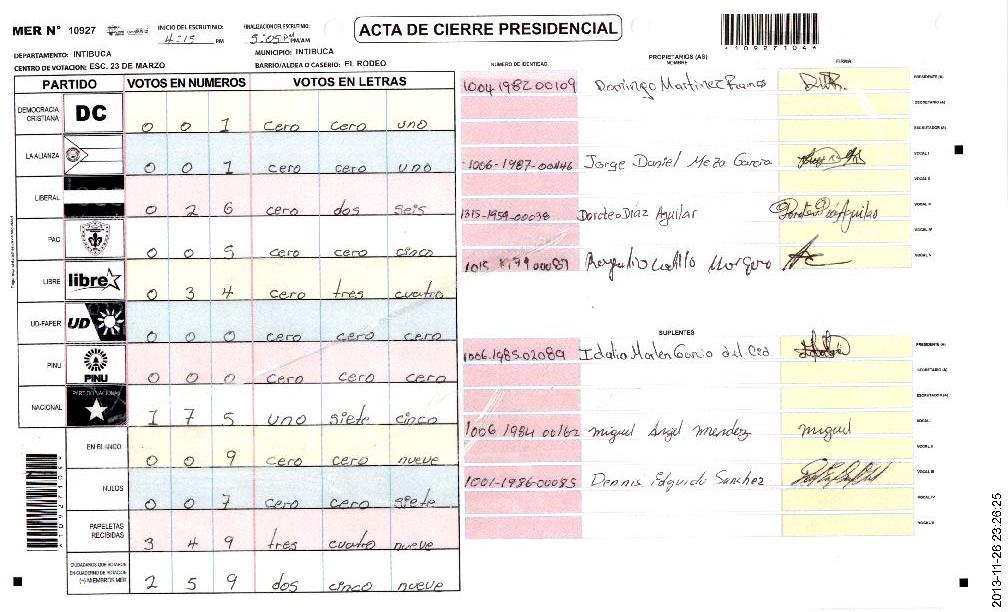 MER N° 10927
INICIO DEL ESCRUTINIO: 4:15 PM
FINALIZACION DEL ESCRUTINIO: 5:05 PM/AM
ACTA DE CIERRE PRESIDENCIAL
*10927104*
DEPARTAMENTO: INTIBUCA
MUNICIPIO: INTIBUCA
CENTRO DE VOTACION: ESC. 23 DE MARZO
BARRIO/ALDEA O CASERIO: EL RODEO
PARTIDO VOTOS EN NUMEROS VOTOS EN LETRAS
DEMOCRACIA CRISTIANA DC 0 0 1 cero cero uno
LA ALIANZA 0 0 1 cero cero uno
LIBERAL 0 2 6 cero dos seis
PAC 0 0 5 cero cero cinco
LIBRE libre 0 3 4 cero tres cuatro
UD-FAPER UD 0 0 0 cero cero cero
PINU PINU 0 0 0 cero cero cero
NACIONAL PARTIDO NACIONAL 1 7 5 uno siete cinco
EN BLANCO 0 0 9 cero cero nueve
NULOS 0 0 7 cero cero siete
PAPELETAS RECIBIDAS 3 4 9 tres cuatro nueve
CIUDADANOS QUE VOTARON EN CUADERNO DE VOTACIÓN (+) MIEMBROS MER 2 5 9 dos cinco nueve
*10927104*
NUMERO DE IDENTIDAD
PROPIETARIOS (AS)
NOMBRE
FIRMA
1004 1982 00109 Domingo Martinez PRESIDENTE (A)
SECRETARIO (A)
ESCRUTADOR (A)
1006-1987-00446 Jorge Daniel Meza Garcia VOCAL I
VOCAL II
1315-1959-00038 Doroteo Díaz Aguilar Doroteo Díaz Aguilar VOCAL III
VOCAL IV
VOCAL V
SUPLENTES
1006.1985.02089 Idalia Marlen Garcia del Cid PRESIDENTE (A)
SECRETARIO (A)
ESCRUTADOR (A)
1006 1984 00162 Miguel Angel Mendez miguel VOCAL I
VOCAL II
1001-1986-00085 Dennis Edgardo Sanchez VOCAL III
VOCAL IV
VOCAL V
2013-11-26 23:26:25